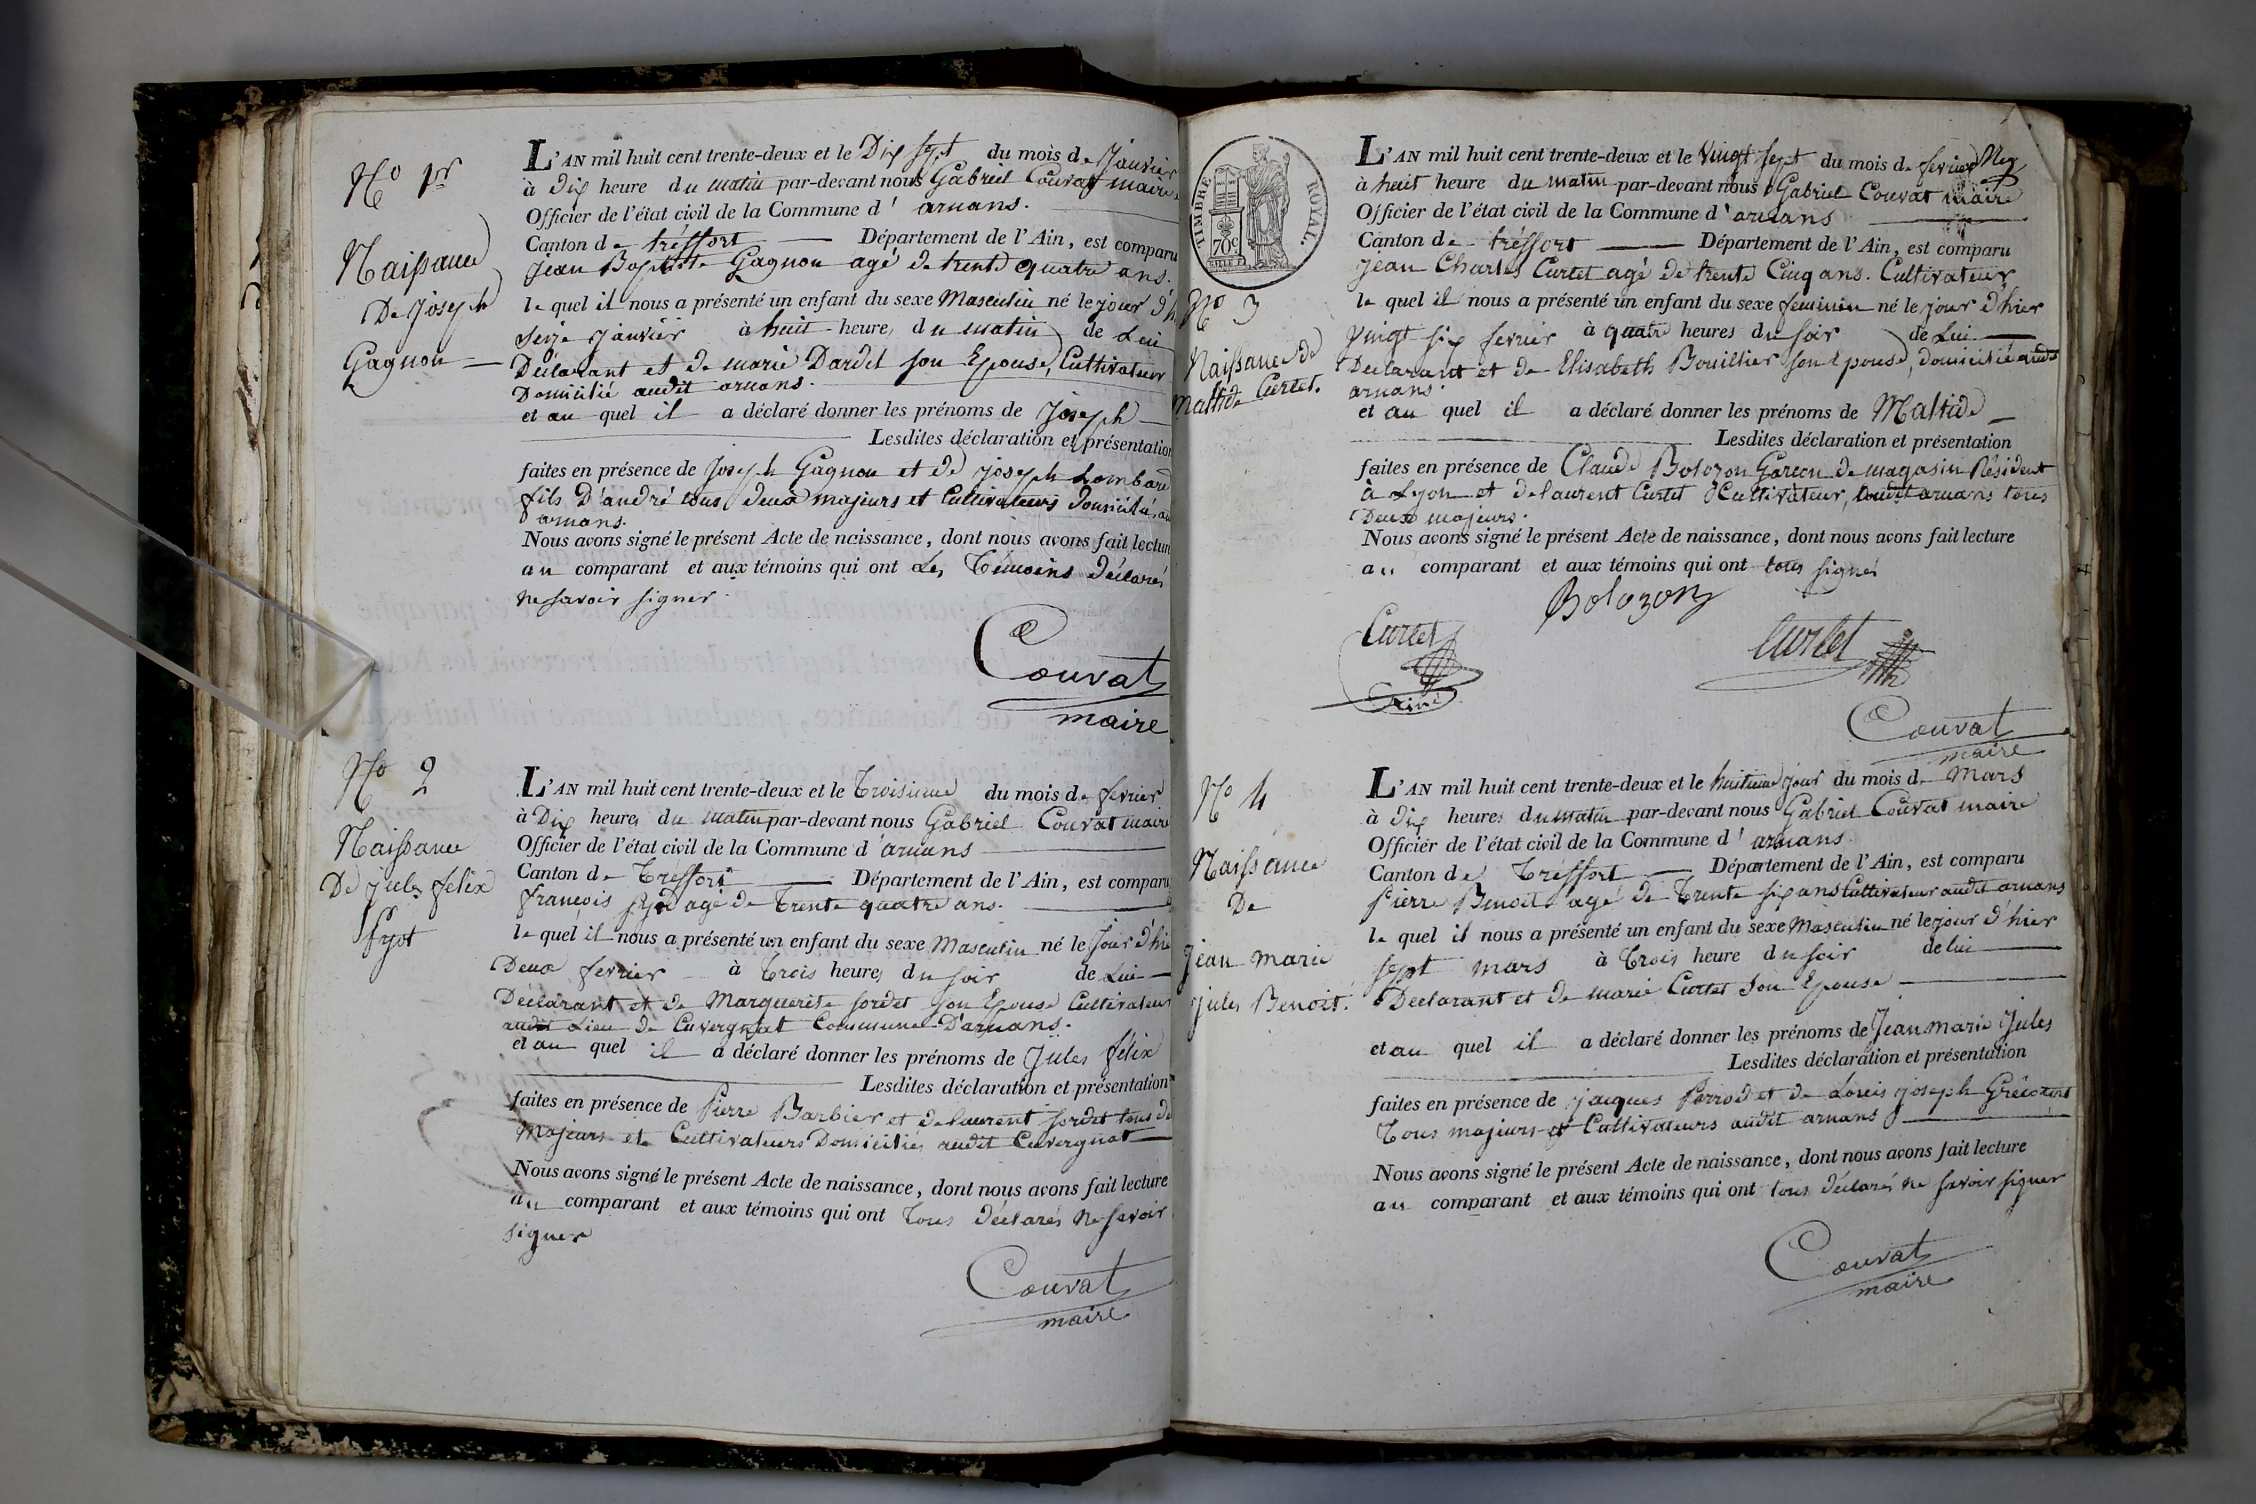 No 1er
Naissance
De Joseph
Gagnon
L'AN mil huit cent trente-deux et le Dix sept du mois de Janvier
à Dix heure du matin par-devant nous Gabriel Couvat maire
Officier de l'état civil de la Commune d' arnans.
Canton de tréffort Département de l'Ain, est comparu
jean Baptiste Gagnon agé de trente quatre ans.
le quel il nous a présenté un enfant du sexe Masculin né le jour d'h
seize janvier à huit heures du matin de Lui
Déclarant et de marie Dardet son Epouse, Cultivateur
Domicilié audit arnans.
et au quel il a déclaré donner les prénoms de Joseph
Lesdites déclaration et présentation
faites en présence de Joseph Gagnon et de joseph hombard
fils D'andré tous deux majeurs et Cultivateurs Domiciliés au
arnans.
Nous avons signé le présent Acte de naissance, dont nous avons fait lecture
au comparant et aux témoins qui ont Les Témoins déclarés
ne savoir signer
Couvat
maire
No 2
Naissance
De jules felix
fyot
L'AN mil huit cent trente-deux et le Troisieme du mois de fevrier
à Dix heures du matin par-devant nous Gabriel Couvat maire
Officier de l'état civil de la Commune d' arnans
Canton de Tréffort Département de l'Ain, est comparu
françois agé de Trente quatre ans.
le quel il nous a présenté un enfant du sexe Masculin né le Jour d'hie
Deux fevrier à Trois heures du soir de Lui
Déclarant et de Marguerite sordet son Epouse Cultivateur
audit Lieu de Cuvergnat Commune D'arnans.
et au quel il a déclaré donner les prénoms de Jules félix
Lesdites déclaration et présentation
faites en présence de Pierre Barbier et de laurent sordet tous de
Majeurs et Cultivateurs Domiciliés audit Cuvergnat
Nous avons signé le présent Acte de naissance, dont nous avons fait lecture
au comparant et aux témoins qui ont Tous déclarés ne savoir
signer
Couvat
maire
TIMBRE ROYAL.
70c
No 3
Naissance de
Maltide Curtet.
L'AN mil huit cent trente-deux et le Vingt sept du mois de fevrier
à huit heure du matin par-devant nous Gabriel Couvat maire
Officier de l'état civil de la Commune d' arnans
Canton de tréffort Département de l'Ain, est comparu
jean Charles Curtet agé de trente Cinq ans. Cultivateur
le quel il nous a présenté un enfant du sexe feminin né le jour d'hier
vingt six fevrier à quatre heures du soir de Lui
Déclarant et de Elisabeth Bouillier son Epouse, domicilié audit
arnans.
et au quel il a déclaré donner les prénoms de Maltide
Lesdites déclaration et présentation
faites en présence de Claude Bolozon Garcon de magasin Résident
à Lyon et de laurent Curtet Cultivateur, audit arnans tous
Deux majeurs.
Nous avons signé le présent Acte de naissance, dont nous avons fait lecture
au comparant et aux témoins qui ont tous signés
Bolozon
Curtet
Curtet
Couvat
maire
No 4
Naissance
De
jean marie
jules Benoit.
L'AN mil huit cent trente-deux et le huitieme jour du mois de Mars
à dix heures du matin par-devant nous Gabriel Couvat maire
Officier de l'état civil de la Commune d' arnans.
Canton de Tréffort Département de l'Ain, est comparu
Pierre Benoit agé de Trente six ans Cultivateur audit arnans
le quel il nous a présenté un enfant du sexe Masculin né le jour d'hier
sept mars à Trois heure du soir de lui
Déclarant et de marie Curtet son Epouse
et au quel il a déclaré donner les prénoms de Jean marie Jules
Lesdites déclaration et présentation
faites en présence de jacques Perrod et de Louis joseph
Tous majeurs et Cultivateurs audit arnans
Nous avons signé le présent Acte de naissance, dont nous avons fait lecture
au comparant et aux témoins qui ont tous déclarés ne savoir signer
Couvat
maire